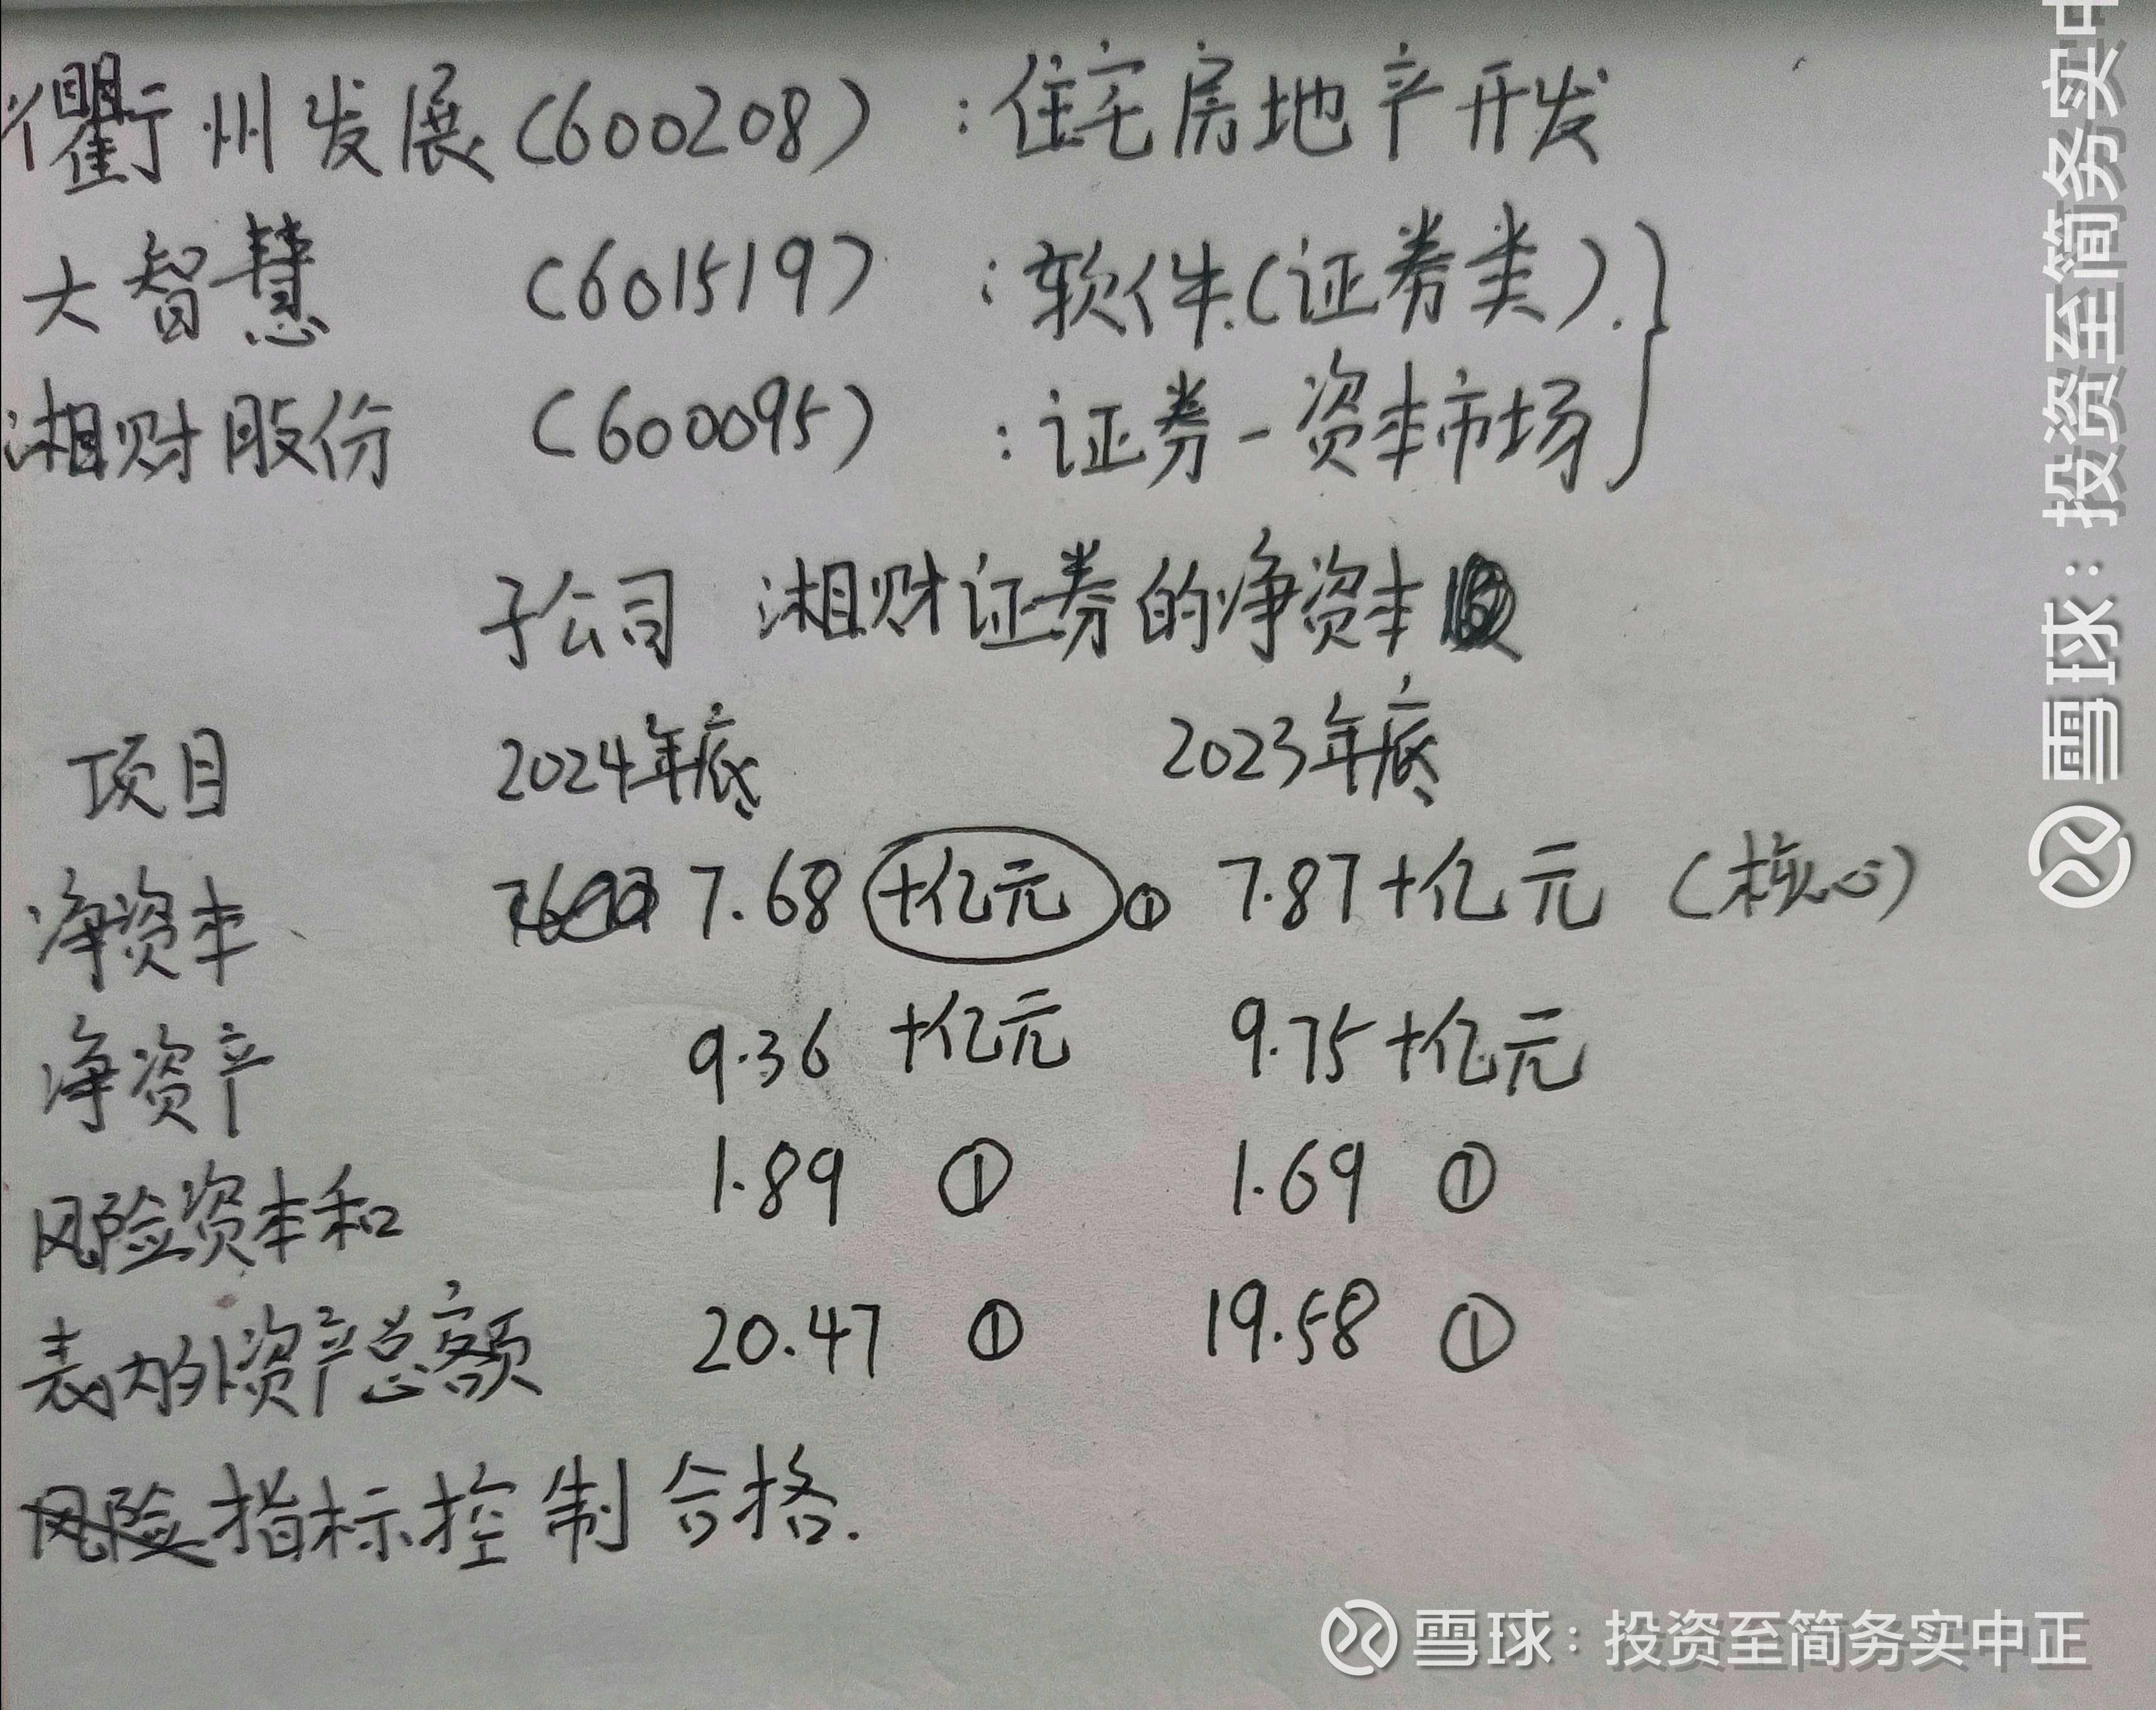 衢州发展(600208) :住宅房地产开发
大智慧 (601519) :软件.(证券类).}
湘财股份 (600095) :证券-资本市场
子公司 湘财证券的净资本
项目 2024年底 2023年底
净资本 7.68 十亿元 ① 7.87十亿元 (核心)
净资产 9.36 十亿元 9.75十亿元
风险资本和 1.89 ① 1.69 ①
表内外资产总额 20.47 ① 19.58 ①
风险指标控制合格.
雪球:投资至简务实中正
雪球:投资至简务实中